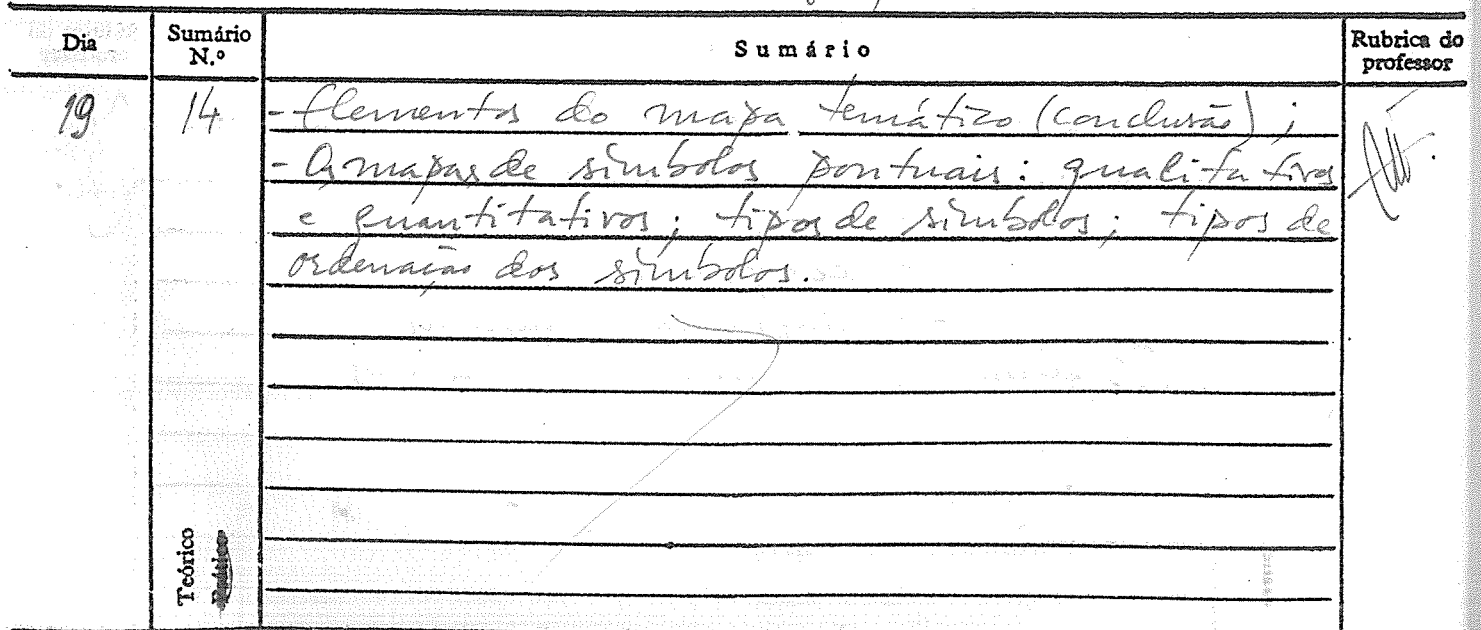 Dia Sumário N.º Sumário Rubrica do professor
19 14 - Elementos do mapa temático (conclusão);
- Os mapas de símbolos pontuais: qualitativos
e quantitativos; tipos de símbolos; tipos de
ordenação dos símbolos.
Teórico